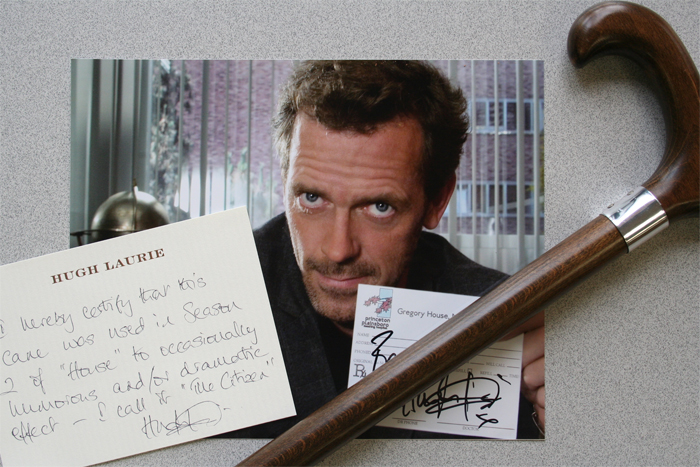 HUGH LAURIE
I hereby certify that this
cane was used in Season
2 of "House" to occasionally
humorous and/or dramatic
effect – I call it "The Citizen"
Gregory House, M
princeton
plainsboro
teaching hospital